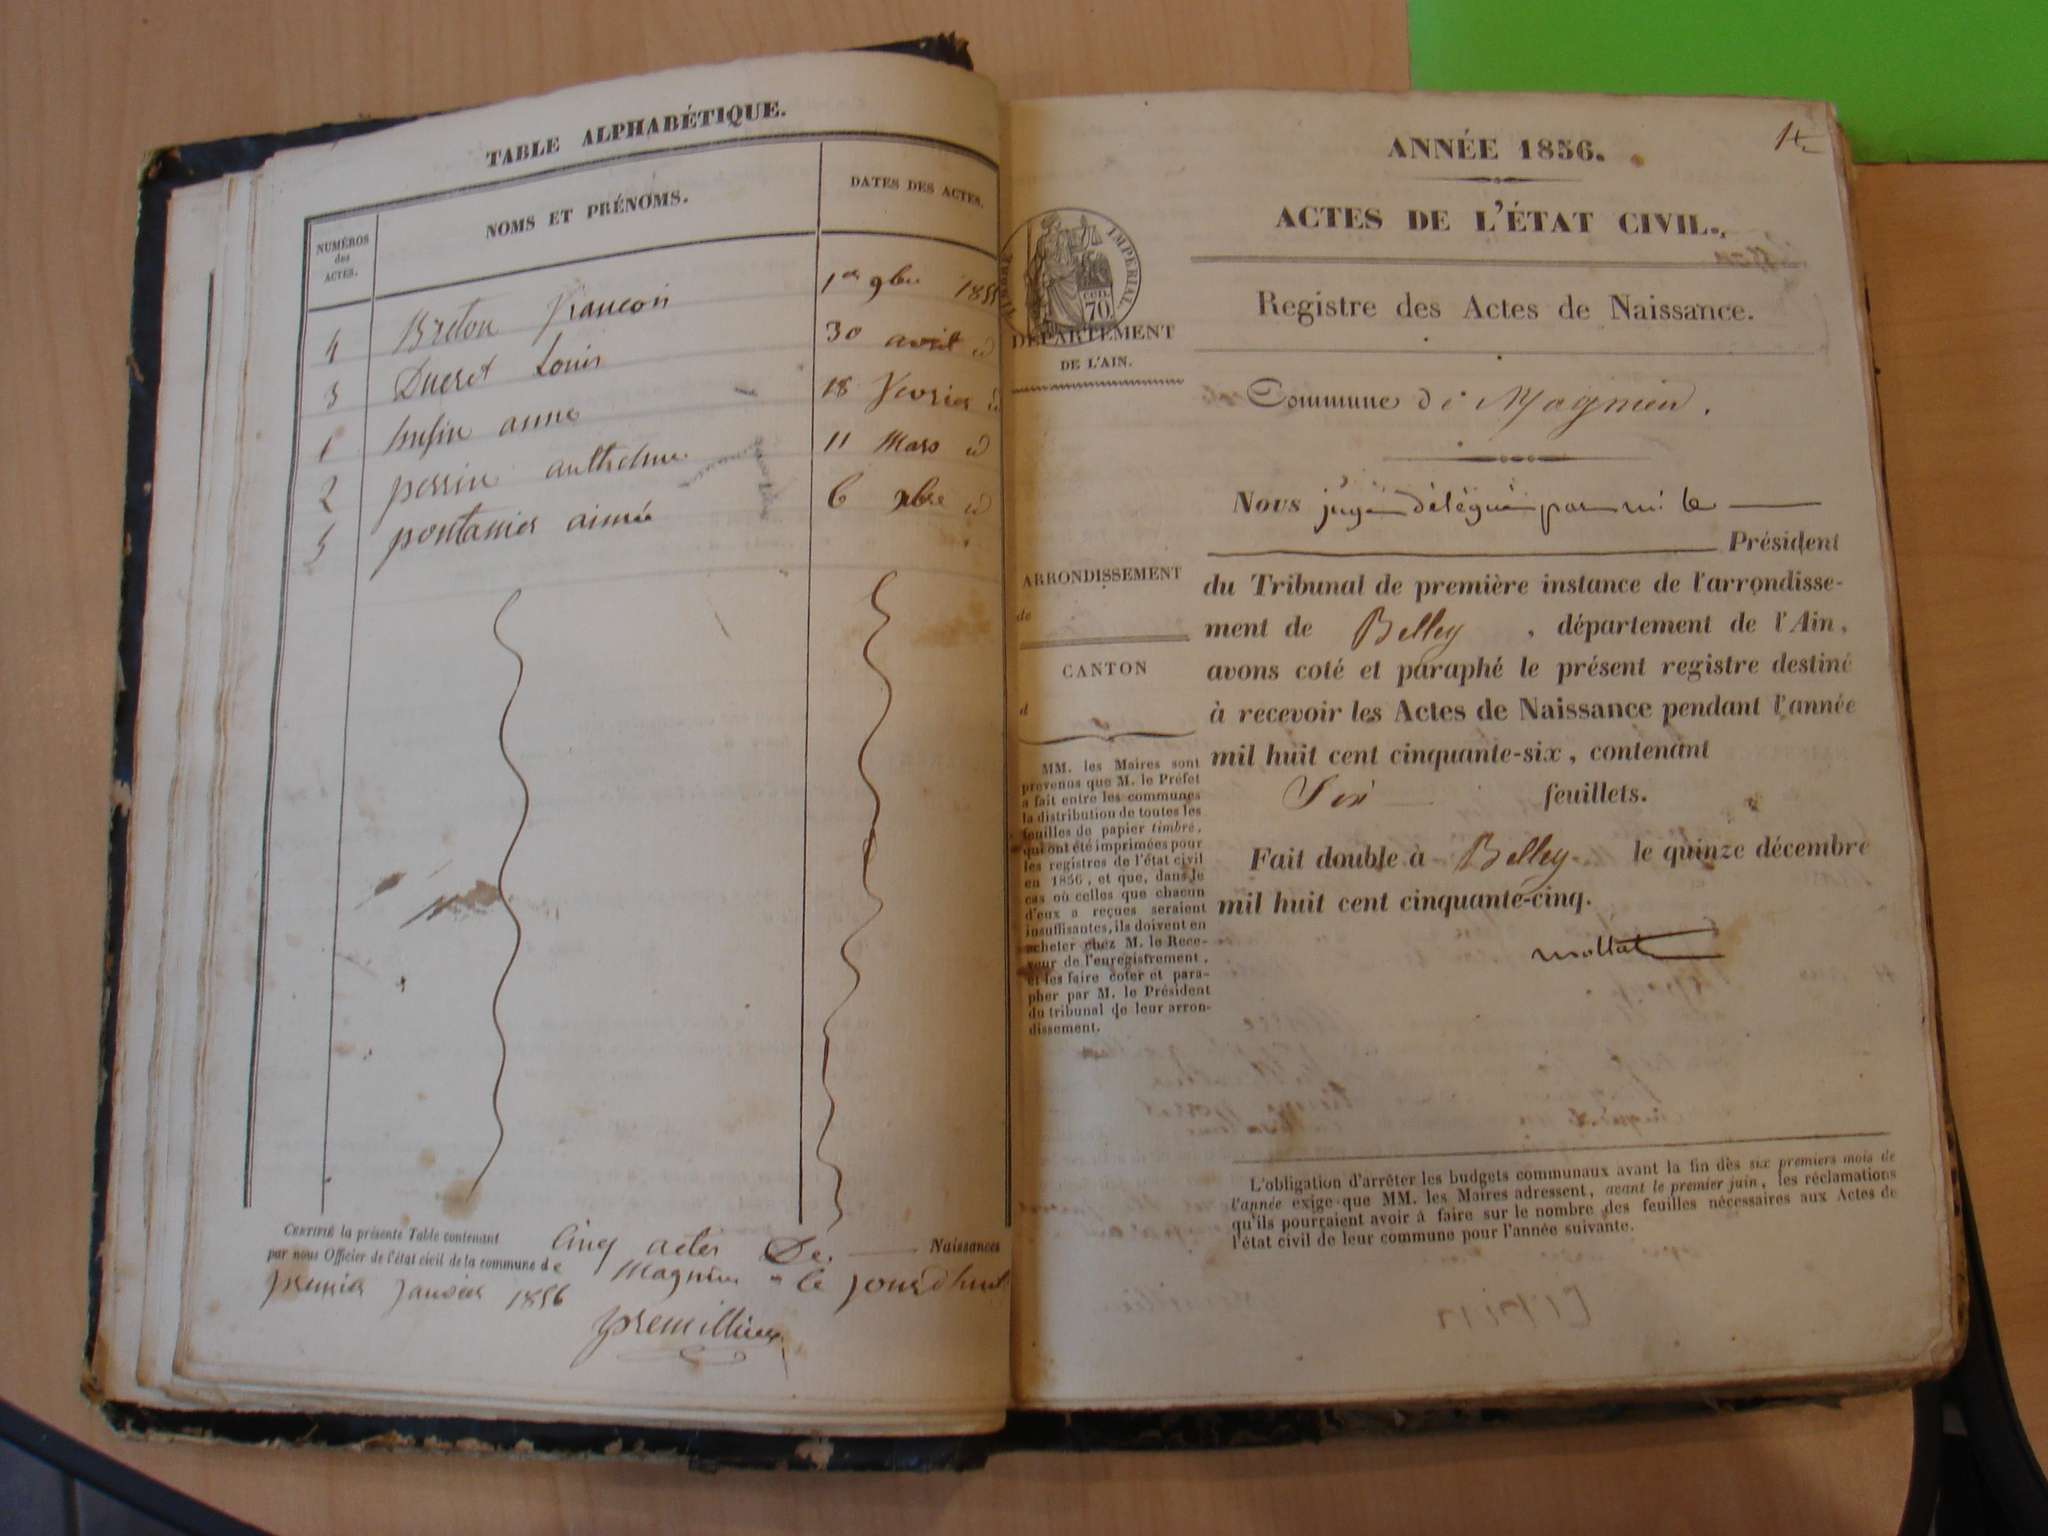 TABLE ALPHABÉTIQUE.
NUMÉROS des ACTES.
NOMS ET PRÉNOMS.
DATES DES ACTES.
4 Breton François 1er 9bre 1855
3 Ducret Louis 30 avril id
1 anne 18 fevrier id
2 perrin anthelme 11 Mars id
5 pontanier aimée 6 xbre id
CERTIFIÉ la présente Table contenant Cinq actes De Naissances
par nous Officier de l'état civil de la commune de Magnieu ce jourd'hui
premier janvier 1856
premillieux
1er
ANNÉE 1856.
ACTES DE L'ÉTAT CIVIL.
TIMBRE IMPERIAL
CUIL. 70
DÉPARTEMENT
DE L'AIN.
Registre des Actes de Naissance.
Commune de Magnieu.
Nous juge délégué par mr le
Président
ARRONDISSEMENT
de
CANTON
d
du Tribunal de première instance de l'arrondisse-
ment de Belley, département de l'Ain,
avons coté et paraphé le présent registre destiné
à recevoir les Actes de Naissance pendant l'année
mil huit cent cinquante-six, contenant
Six feuillets.
Fait double à Belley le quinze décembre
mil huit cent cinquante-cinq.
mollat
MM. les Maires sont
prévenus que M. le Préfet
a fait entre les communes
la distribution de toutes les
feuilles de papier timbré,
qui ont été imprimées pour
les registres de l'état civil
en 1856, et que, dans le
cas où celles que chacun
d'eux a reçues seraient
insuffisantes, ils doivent en
acheter chez M. le Rece-
veur de l'enregistrement,
et les faire coter et para-
pher par M. le Président
du tribunal de leur arron-
dissement.
L'obligation d'arrêter les budgets communaux avant la fin des six premiers mois de
l'année exige que MM. les Maires adressent, avant le premier juin, les réclamations
qu'ils pourraient avoir à faire sur le nombre des feuilles nécessaires aux Actes de
l'état civil de leur commune pour l'année suivante.